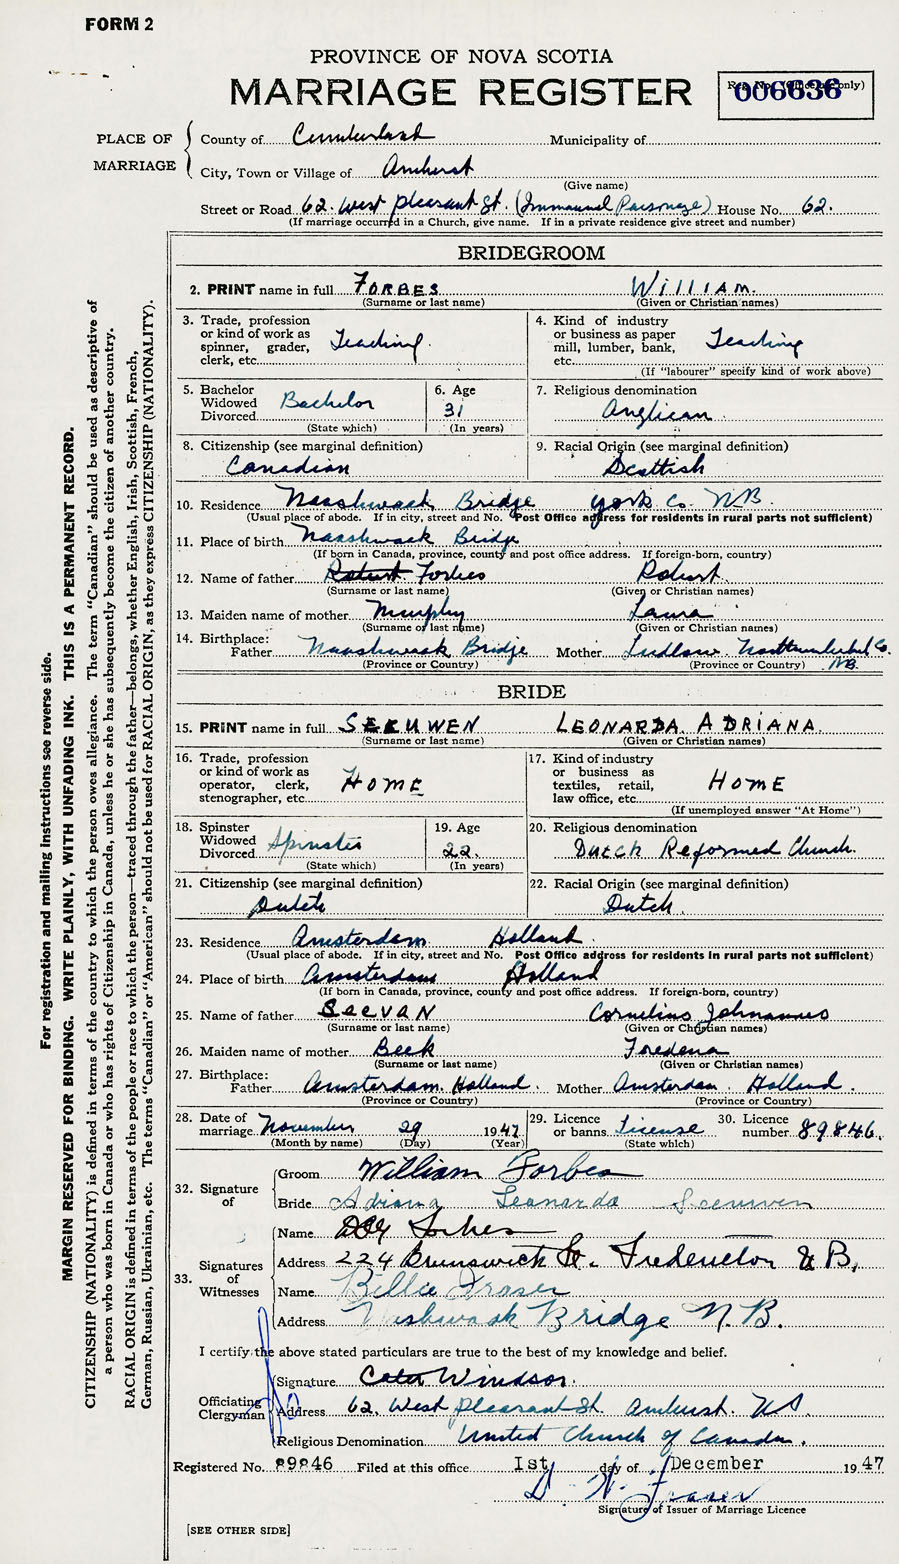 FORM 2
PROVINCE OF NOVA SCOTIA
MARRIAGE REGISTER
Reg. No. (Office use only)
006636
PLACE OF MARRIAGE
County of Cumberland Municipality of
City, Town or Village of Amherst
(Give name)
Street or Road 62. West Pleasant St. (Immanuel Parsonage) House No. 62.
(If marriage occurred in a Church, give name. If in a private residence give street and number)
BRIDEGROOM
2. PRINT name in full FORBES WILLIAM.
(Surname or last name) (Given or Christian names)
3. Trade, profession or kind of work as spinner, grader, clerk, etc. Teaching.
4. Kind of industry or business as paper mill, lumber, bank, etc. Teaching
(If "labourer" specify kind of work above)
5. Bachelor Widowed Divorced Bachelor
(State which)
6. Age 31
(In years)
7. Religious denomination Anglican.
8. Citizenship (see marginal definition) Canadian
9. Racial Origin (see marginal definition) Scottish
10. Residence Naashwaak Bridge York Co. N.B.
(Usual place of abode. If in city, street and No. Post Office address for residents in rural parts not sufficient)
11. Place of birth Naashwaak Bridge
(If born in Canada, province, county and post office address. If foreign-born, country)
12. Name of father Robert Forbes Robert.
(Surname or last name) (Given or Christian names)
13. Maiden name of mother Murphy Laura
(Surname or last name) (Given or Christian names)
14. Birthplace: Father Naashwaak Bridge Mother Ludlow Northumberland Co. N.B.
(Province or Country) (Province or Country)
BRIDE
15. PRINT name in full SEEUWEN LEONARDA ADRIANA.
(Surname or last name) (Given or Christian names)
16. Trade, profession or kind of work as operator, clerk, stenographer, etc. HOME
17. Kind of industry or business as textiles, retail, law office, etc. HOME
(If unemployed answer "At Home")
18. Spinster Widowed Divorced Spinster
(State which)
19. Age 22.
(In years)
20. Religious denomination Dutch Reformed Church.
21. Citizenship (see marginal definition) Dutch
22. Racial Origin (see marginal definition) Dutch.
23. Residence Amsterdam Holland.
(Usual place of abode. If in city, street and No. Post Office address for residents in rural parts not sufficient)
24. Place of birth Amsterdam Holland
(If born in Canada, province, county and post office address. If foreign-born, country)
25. Name of father Cornelius Johnannes
(Surname or last name) (Given or Christian names)
26. Maiden name of mother Beek Fredena
(Surname or last name) (Given or Christian names)
27. Birthplace: Father Amsterdam. Holland. Mother Amsterdam. Holland.
(Province or Country) (Province or Country)
28. Date of marriage November 29 1947
(Month by name) (Day) (Year)
29. Licence or banns License
(State which)
30. Licence number 89846.
32. Signature of
Groom William Forbes
Bride Adriana Leonarda Seeuwen
33. Signatures of Witnesses
Name Forbes
Address 224 Brunswick St. Fredericton N.B.
Name Billie Fraser
Address Nashwaak Bridge N.B.
I certify the above stated particulars are true to the best of my knowledge and belief.
Officiating Clergyman
Signature Windsor.
Address 62. West Pleasant St. Amherst. N.S.
Religious Denomination United Church of Canada.
Registered No. 89846 Filed at this office 1st day of December 1947
D. W. Fraser
Signature of Issuer of Marriage Licence
[SEE OTHER SIDE]
For registration and mailing instructions see reverse side.
MARGIN RESERVED FOR BINDING. WRITE PLAINLY, WITH UNFADING INK. THIS IS A PERMANENT RECORD.
CITIZENSHIP (NATIONALITY) is defined in terms of the country to which the person owes allegiance. The term "Canadian" should be used as descriptive of
a person who was born in Canada or who has rights of Citizenship in Canada, unless he or she has subsequently become the citizen of another country.
RACIAL ORIGIN is defined in terms of the people or race to which the person—traced through the father—belongs, whether English, Irish, Scottish, French,
German, Russian, Ukrainian, etc. The terms "Canadian" or "American" should not be used for RACIAL ORIGIN, as they express CITIZENSHIP (NATIONALITY).